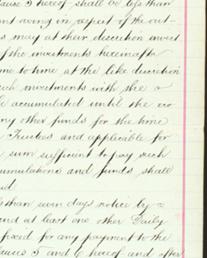 ause 5 hereof shall be less than
nt owing in respect of the out-
s may at their discretion invest
of the investments hereinafter
me to time at the like discretion
such investments with the
be accumulated until the
ny other funds for the time
Trustees and applicable for
sum sufficient to pay such
cumulations and funds shall
id
than seven days notice by
and at least one other Daily
fixed for any payment to the
auses 5 and 6 hereof and after